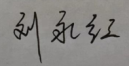 刘永红